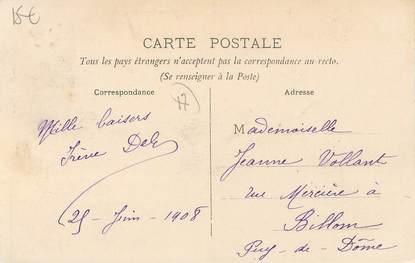 15€
CARTE POSTALE
Tous les pays étrangers n'acceptent pas la correspondance au recto.
(Se renseigner à la Poste)
Correspondance
Adresse
17
Mille baisers
Irène
25 - Juin - 1908
Mademoiselle
Jeanne Vollant
rue Mercière à
Billom
Puy-de-Dôme